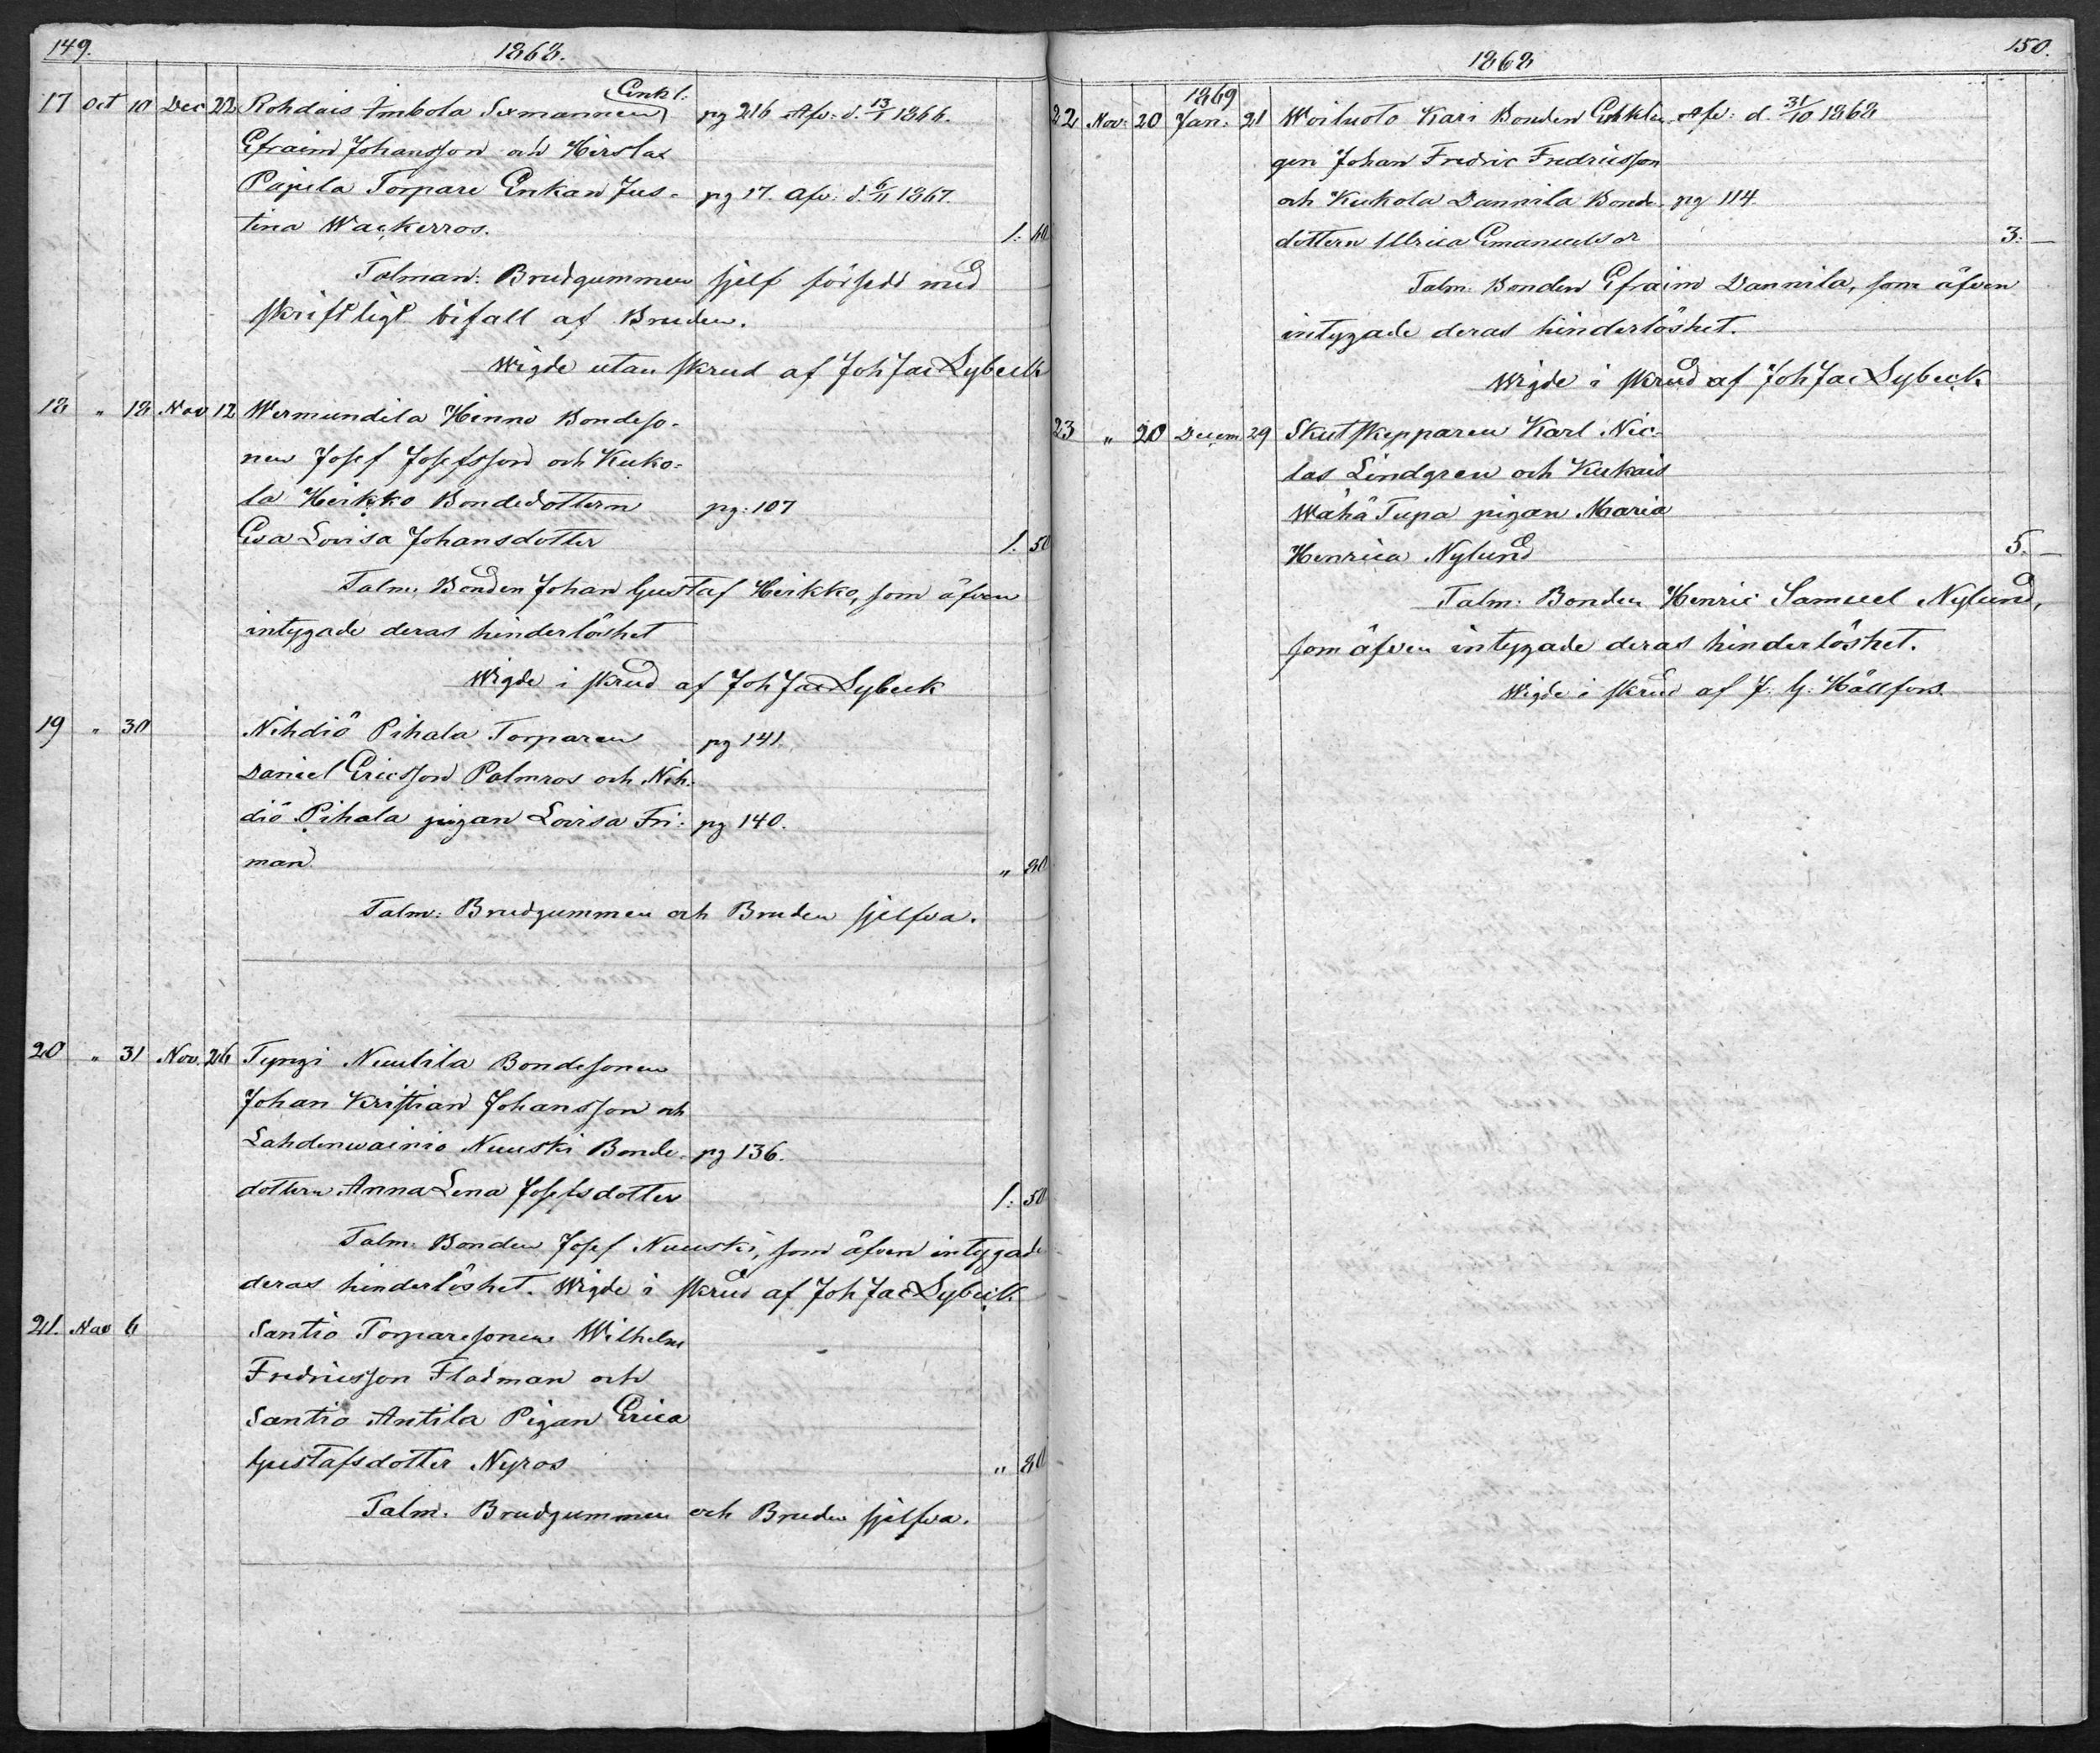 149.
1868.
Enkl:
17 Oct 10 Dec 22 Rohdais Imbola Sexmannen pg 216 Afv: d. 13/1 1866.
Efraim Johansson och Hirslax
Pajula Torpare Enkan Jus- pg 17. Afv: d. 6/11 1867.
tina Wackerros. 1: 60
Talman: Brudgummen sjelf försedd med
skriftligt bifall af Bruden.
Wigde utan skrud af Joh Jac Lybeck
18 " 18 Nov 12 Wermundila Hinno Bondeso-
nen Josef Josefsson och Kuko-
la Heikko Bondedottern pg: 107
Eva Lovisa Johansdotter 1. 50
Talm: Bonden Johan Gustaf Heikko, som äfven
intygade deras hinderlöshet
Wigde i skrud af Joh Jac Lybeck
19 " 30 Nihdiö Pihala Torparen pg 141.
Daniel Ericsson Palmros och Nih-
diö Pihala pigan Lovisa Fri- pg 140.
man " 80
Talm: Brudgummen och Bruden sjelfva.
20 " 31 Nov. 26 Tyngi Nuutila Bondesonen
Johan Kristian Johansson och
Lahdenwainio Nuuski Bonde- pg 136.
dottern Anna Lena Josefsdotter 1: 50
Talm: Bonden Josef Nuuski, som äfven intygade
deras hinderlöshet. Wigde i skrud af Joh Jac Lybeck
21. Nov 6 Santio Torparesonen Wilhelm
Fredricsson Fladman och
Santio Antila Pigan Erica
Gustafsdotter Nyros " 80
Talm: Brudgummen och Bruden sjelfva.
150.
1868
1869
22 Nov: 20 Jan: 21 Woiluoto Kari Bonden Enklin- Afv: d. 31/10 1868
gen Johan Fredric Fredricsson
och Kukola Dannila Bonde- pg 114.
dottern Ulrica Emanuelsdr 3: —
Talm: Bonden Efraim Dannila, som äfven
intygade deras hinderlöshet.
Wigde i skrud af Joh Jac Lybeck
23 " 20 Decem 29 Skutskepparen Karl Nic-
las Lindgren och Kukais
Wähä Tupa pigan Maria
Henrica Nylund 5. —
Talm: Bonden Henric Samuel Nylund,
som äfven intygade deras hinderlöshet.
Wigde i skrud af J. G. Hällfors.